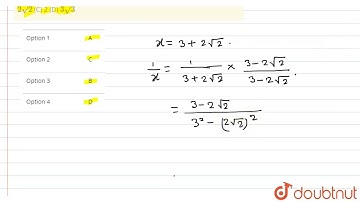 2√2 (C) 2 (D) 3√3
Option 1 A
Option 2 C
Option 3 B
Option 4 D
x = 3 + 2√2 .
1/x = 1/(3 + 2√2) × (3 - 2√2)/(3 - 2√2) .
= (3 - 2√2)/(3² - (2√2)²)
doubtnut